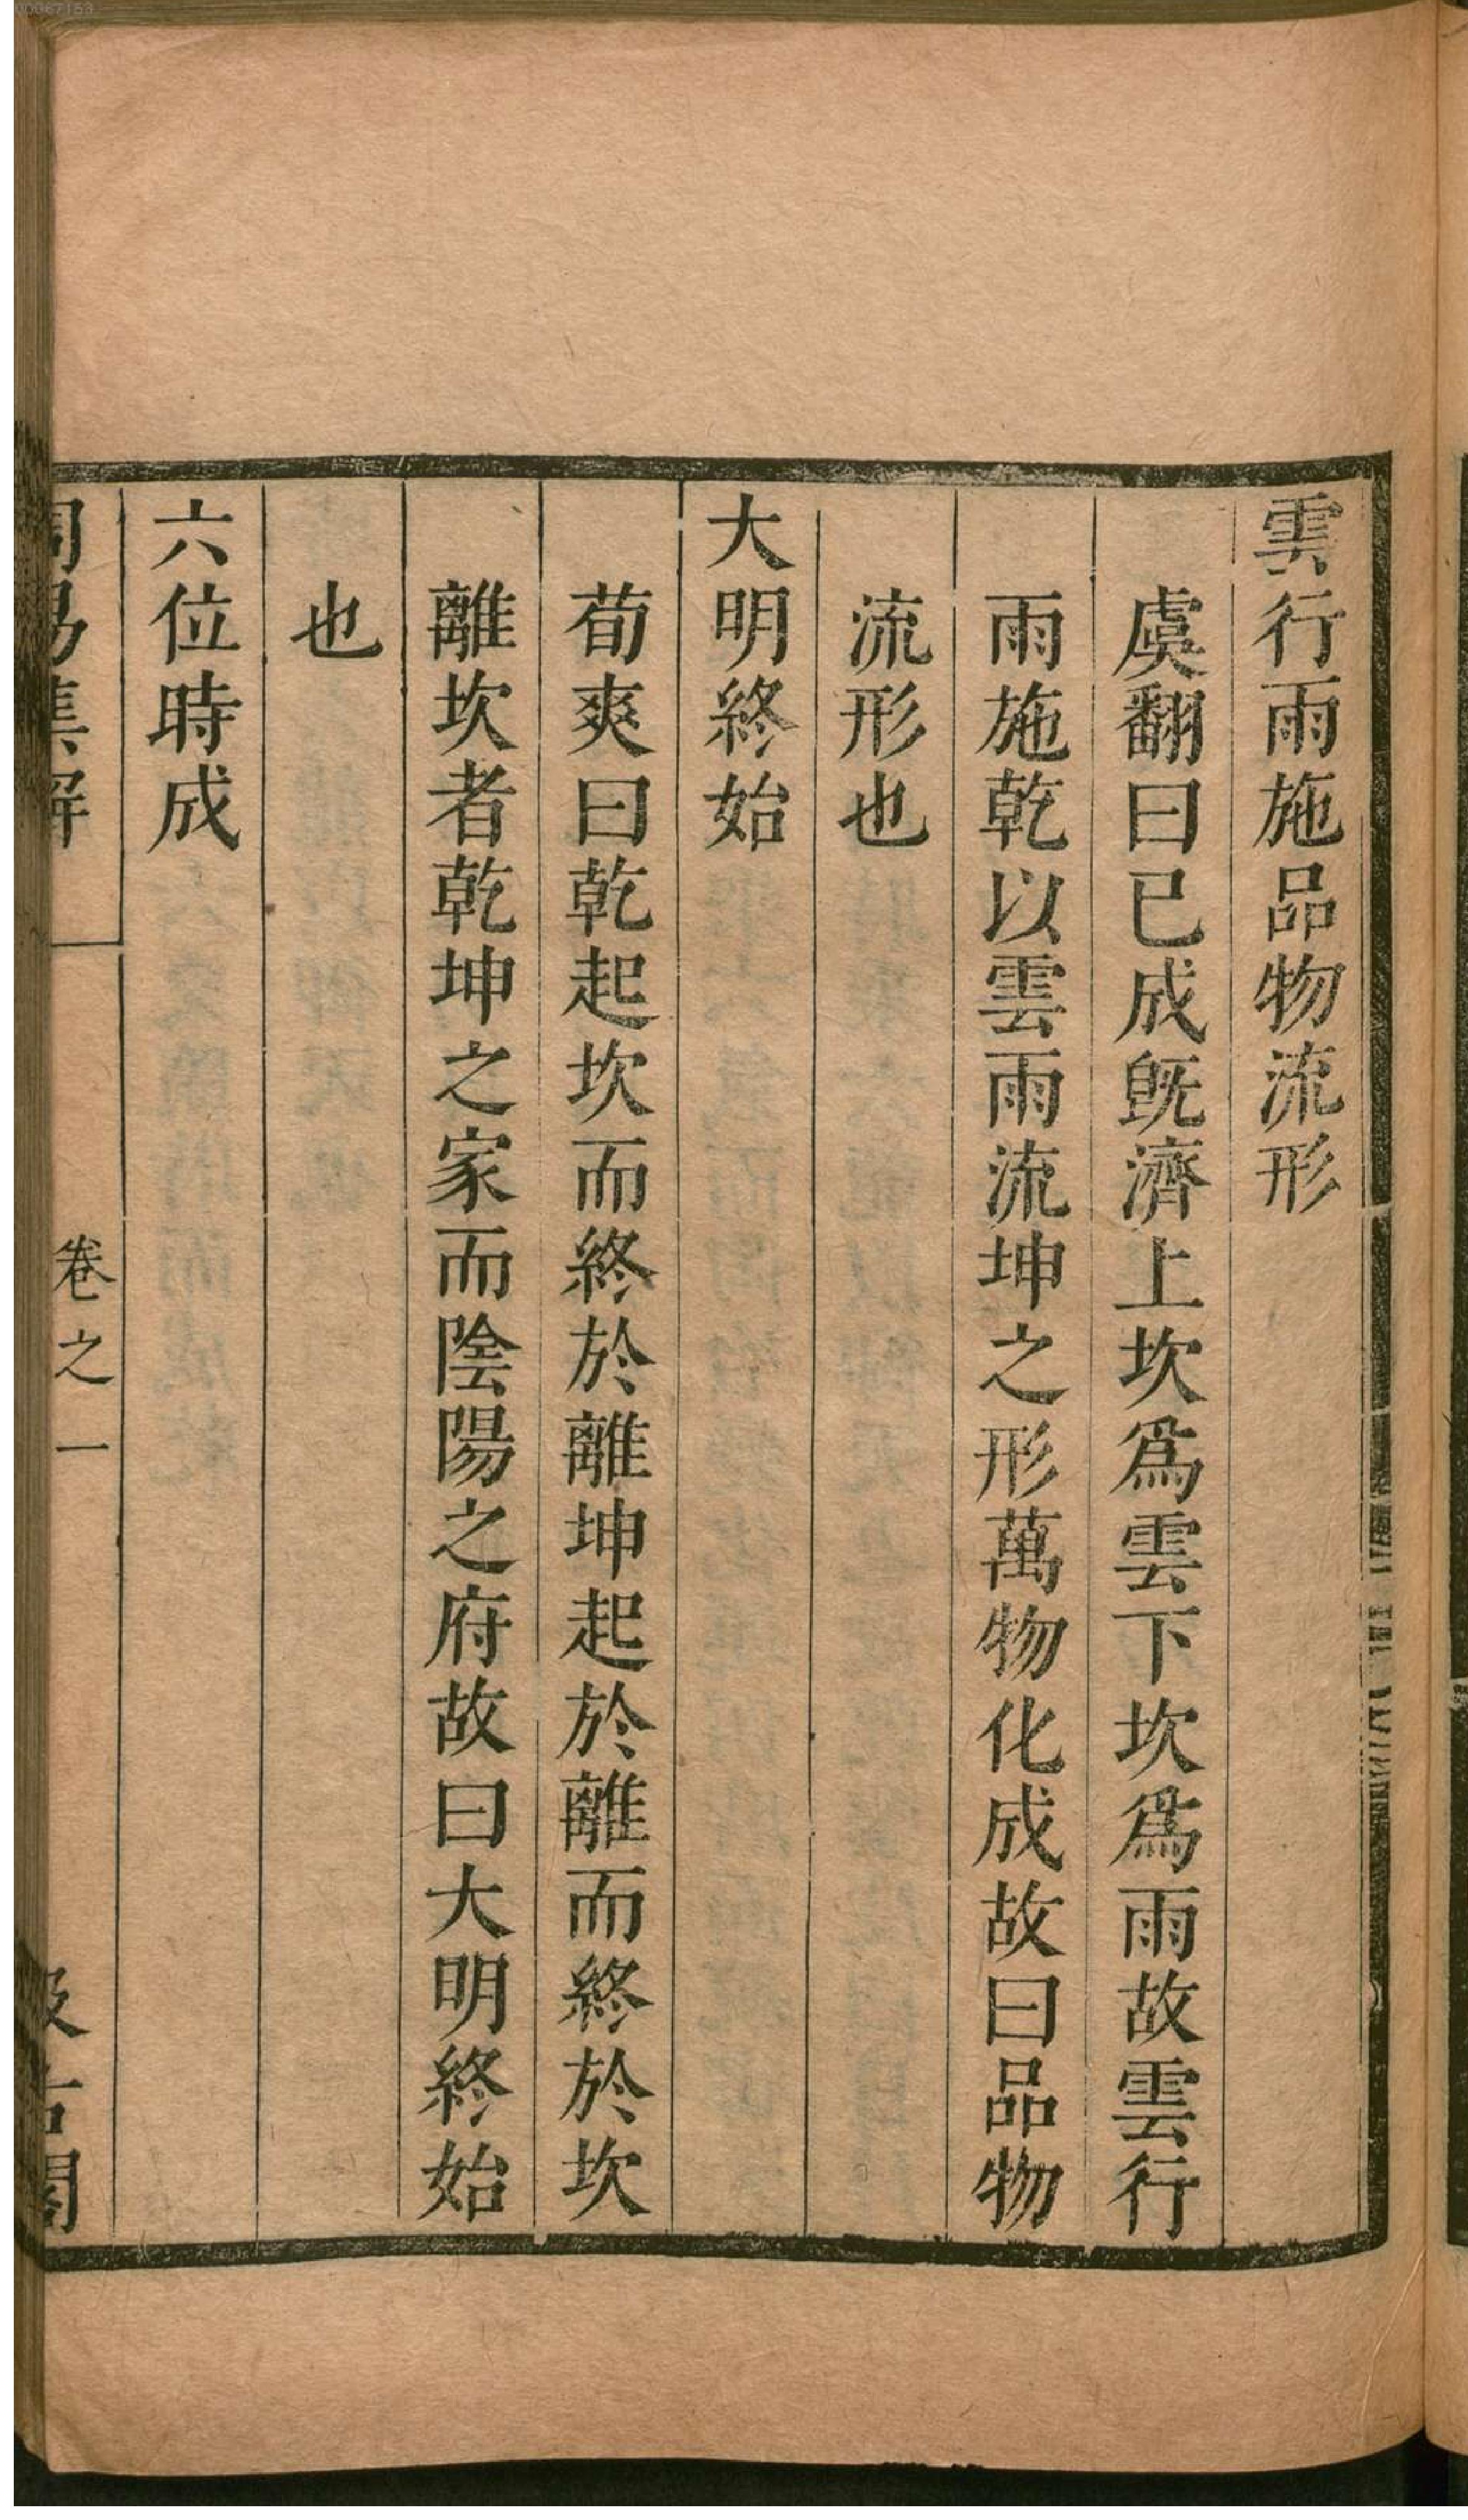 雲行雨施品物流形
虞翻曰已成旣濟上坎爲雲下坎爲雨故雲行
雨施乾以雲雨流坤之形萬物化成故曰品物
流形也
大明終始
荀爽曰乾起坎而終於離坤起於離而終於坎
離坎者乾坤之家而陰陽之府故曰大明終始
也
六位時成
周易集解
卷之一
汲古閣
00067153